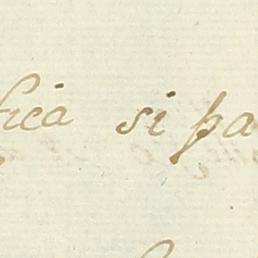 fica si pa